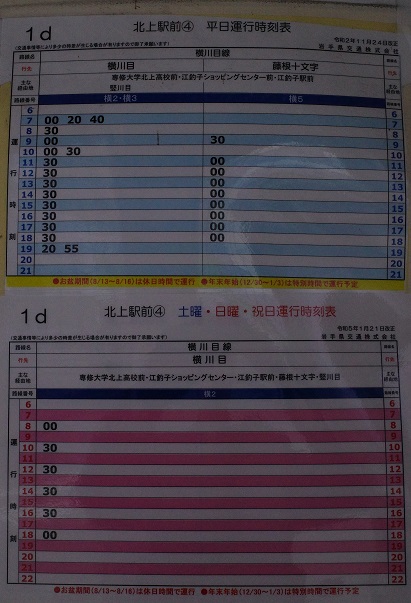 1d 北上駅前④ 平日運行時刻表
令和2年11月24日改正
(交通事情等により多少の時差が生じる場合が有りますので御了承願います) 岩手県交通株式会社
路線名 横川目線
行先 横川目 藤根十文字
主な経由地 専修大学北上高校前・江釣子ショッピングセンター前・江釣子駅前
竪川目
路線番号 横2・横3 横5
運行時刻
6 6
7 00 20 40 7
8 30 8
9 00 30 9
10 00 30 10
11 30 00 11
12 30 00 12
13 30 00 13
14 30 00 14
15 30 00 15
16 30 00 16
17 30 00 17
18 30 00 18
19 20 55 19
20 20
21 21
●お盆期間(8/13~8/16)は休日時間で運行 ●年末年始(12/30~1/3)は特別時間で運行予定
1d 北上駅前④ 土曜・日曜・祝日運行時刻表
令和5年1月21日改正
(交通事情等により多少の時差が生じる場合が有りますので御了承願います) 岩手県交通株式会社
路線名 横川目線
行先 横川目
主な経由地 専修大学北上高校前・江釣子ショッピングセンター・江釣子駅前・藤根十文字・竪川目
路線番号 横2
運行時刻
6 6
7 7
8 00 8
9 9
10 30 10
11 11
12 30 12
13 13
14 30 14
15 15
16 30 16
17 17
18 00 18
19 19
20 20
21 21
22 22
●お盆期間(8/13~8/16)は休日時間で運行 ●年末年始(12/30~1/3)は特別時間で運行予定